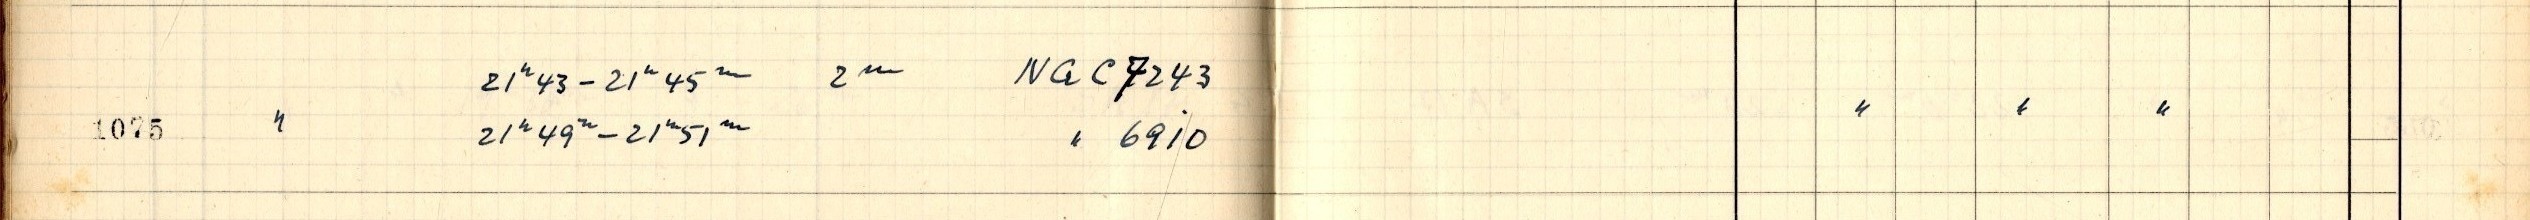 21ʰ43 – 21ʰ45ᵐ 2ᵐ NGC 7243
1075 " 21ʰ49ᵐ – 21ʰ51ᵐ " 6910 " " "